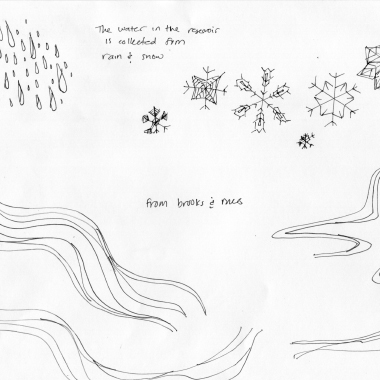 The water in the resevoir
is collected from
rain & snow
from brooks & rivers